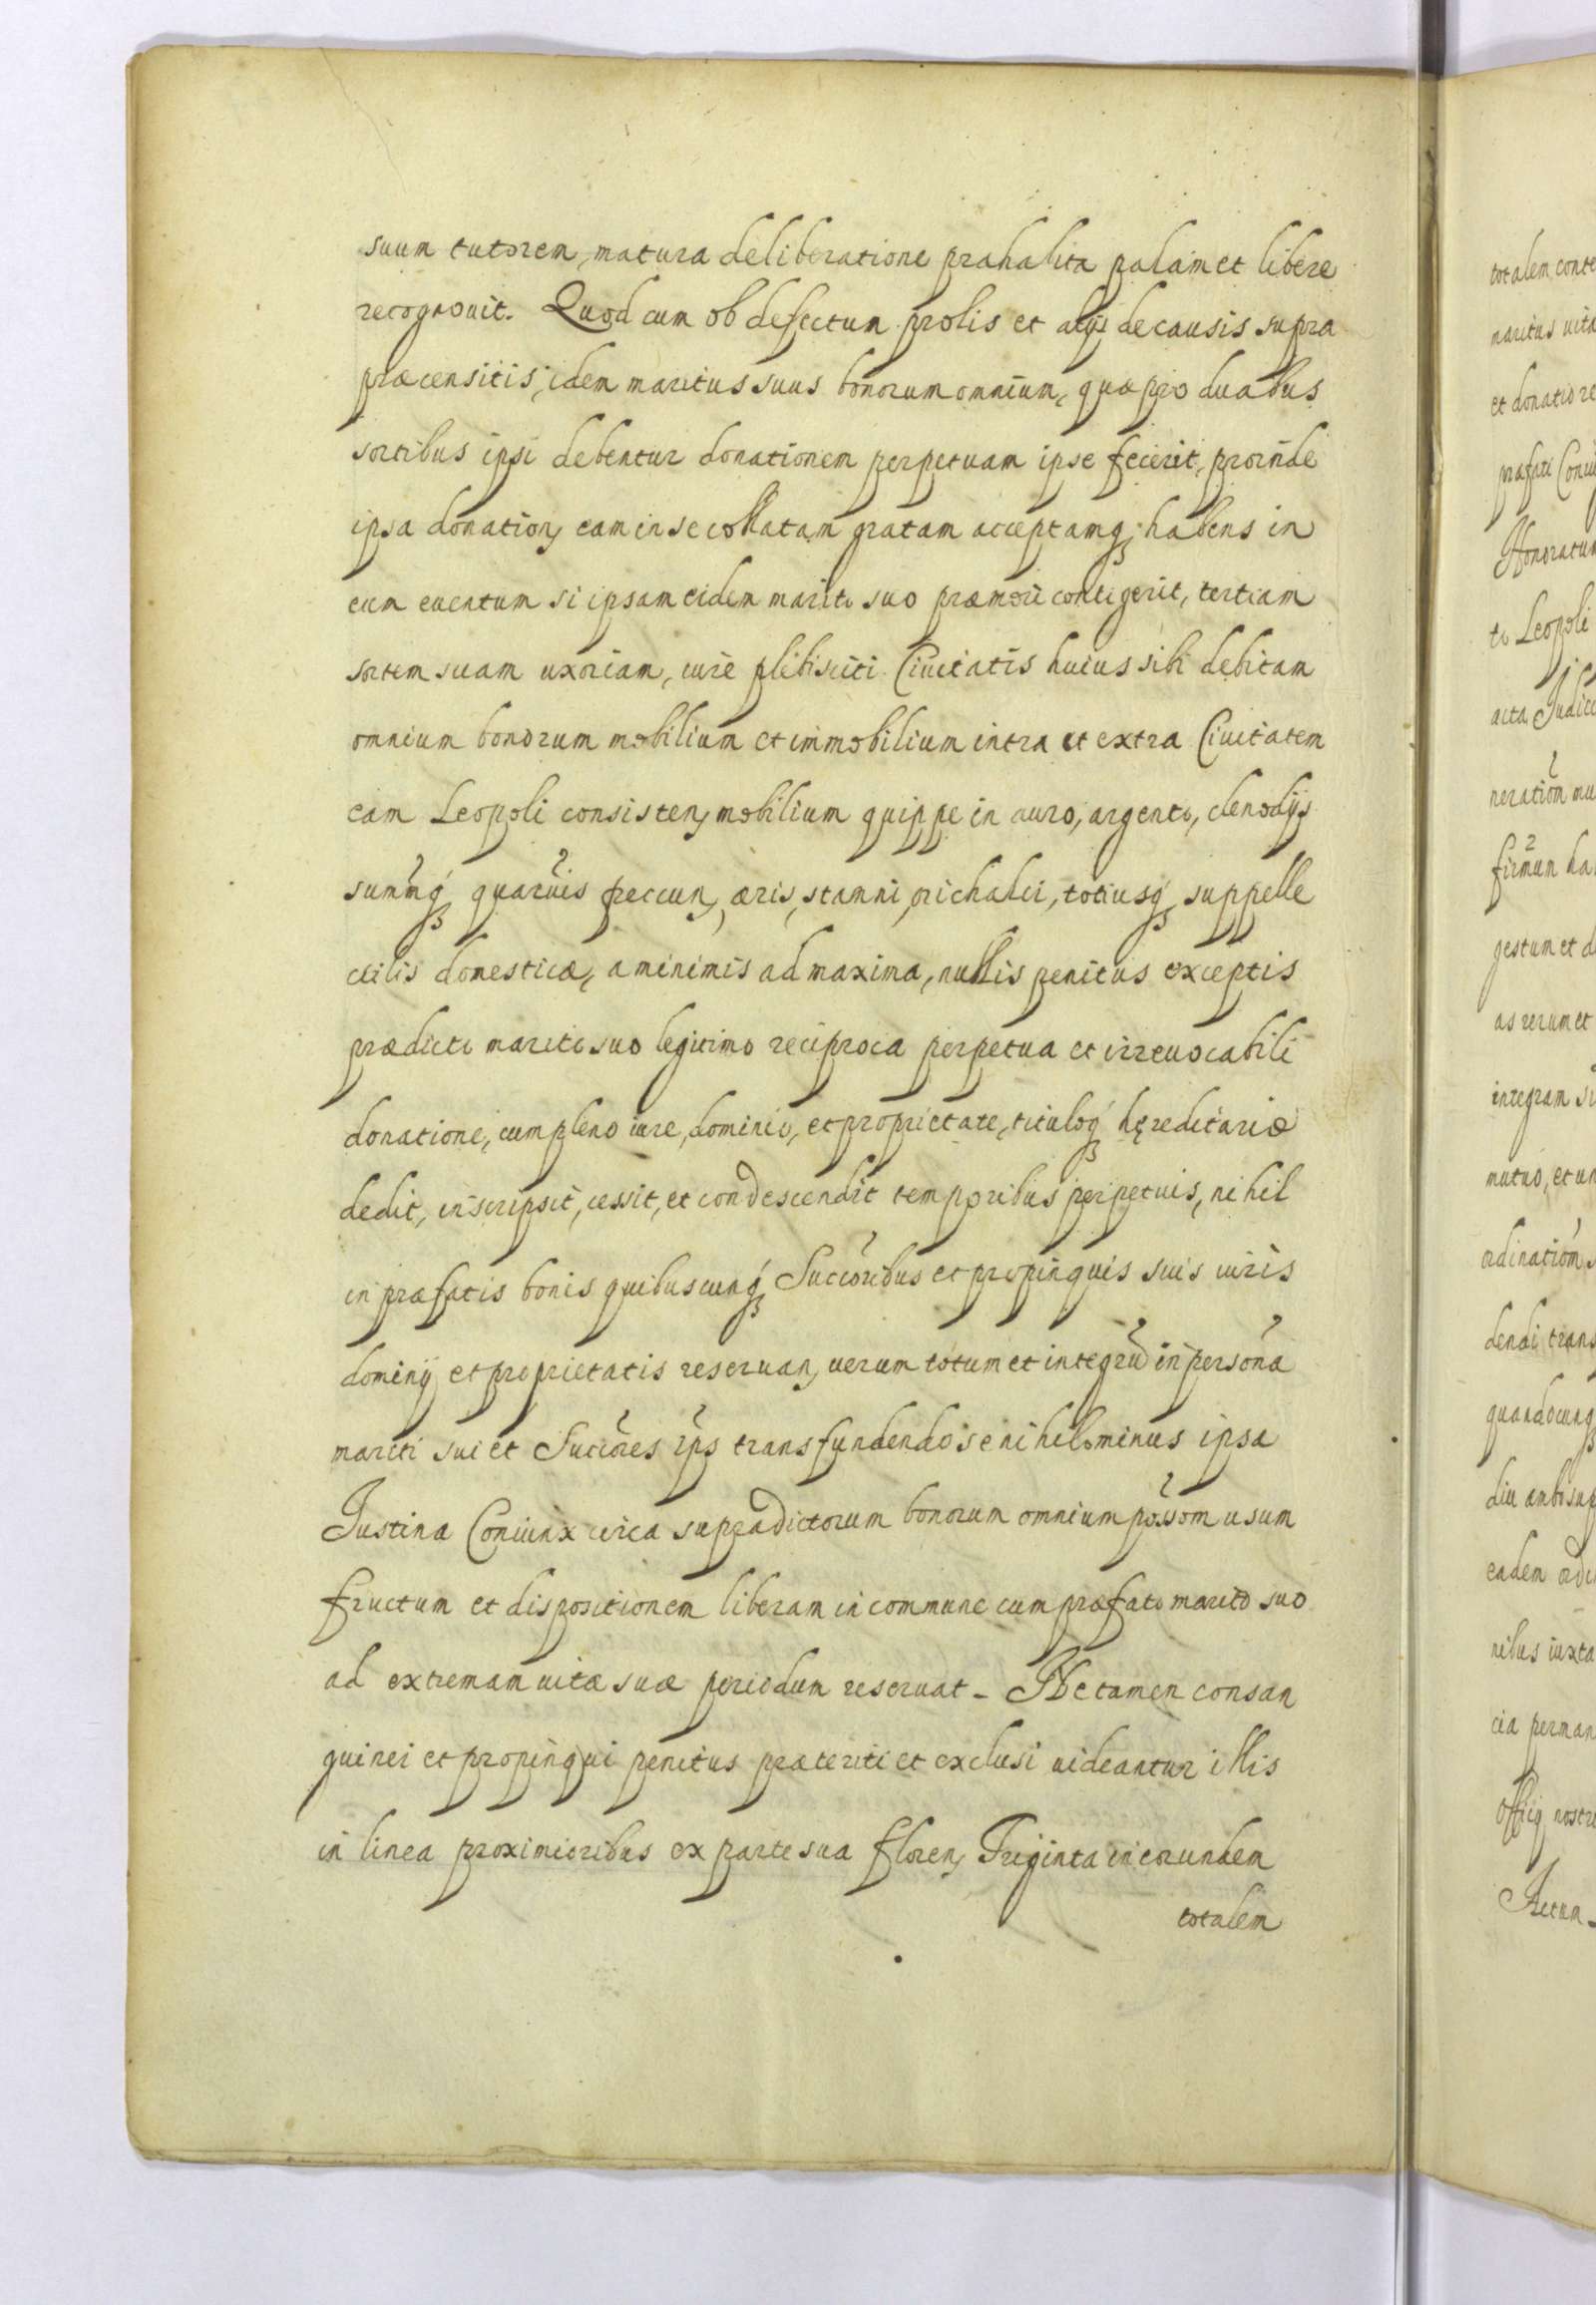 suum tutorem, matura deliberatione prahabita palam et libere
recognouit. Quod cum ob defectum prolis et alijs de causis supra
præcensitis, idem maritus suus bonorum omnium, quæ pro duabus
sortibus ipsi debentur donationem perpetuam ipse fecerit, proinde
ipsa donation, eam in se collatam gratam acceptamq; habens in
eum euentum si ipsam eidem marito suo præmori contigerit, tertiam
sortem suam uxoriam, iure plebisciti Ciuitatis huius sibi debitam
omnium bonorum mobilium et immobilium intra et extra Ciuitatem
eam Leopoli consisten, mobilium quippe in auro, argento, clenodijs
summq; quaruis peccun, æris, stamni, orichalci, totiusq; suppelle
ctilis domesticæ, a minimis ad maxima, nullis penitus exceptis
prædicto marito suo legitimo reciproca perpetua et irreuocabili
donatione, cum pleno iure, dominio, et proprietate, tituloq; hęreditario
dedit, inscripsit, cessit, et condescendit temporibus perpetuis, nihil
in præfatis bonis quibuscunq; Succoribus et propinquis suis iuris
dominij et proprietatis reseruan, uerum totum et integrū in persona
mariti sui et Succores ips transfundendo se nihilominus ipsa
Iustina Coniunx circa supradictorum bonorum omnium possom usum
fructum et dispositionem liberam in commune cum præfato marito suo
ad extremam uitæ suæ periodum reseruat - Ne tamen consan
guinei et propinqui penitus præteriti et exclusi uideantur illis
in linea proximioribus ex parte sua floren, Triginta in eorundem
totalem
totalem conte
maritus uita
et donatio re
præfati Coniu
Honoratum
to Leopoli
acta Judici
neration mu
firmum ha
gestum et d
as rerum et
integram
mutuo, et un
ordination s
dendi trans
quandocunq;
diu ambi sup
eadem ordi
nibus iuxta
cia perman
Officij nostri
Actum